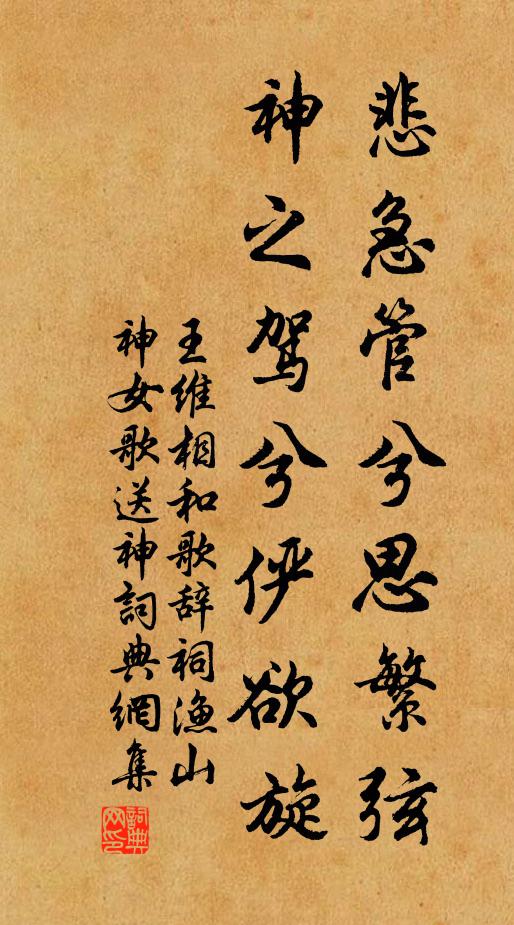 悲急管兮思繁弦
神之驾兮俨欲旋
王维相和歌辞祠渔山
神女歌送神詞典網集
詞典网印